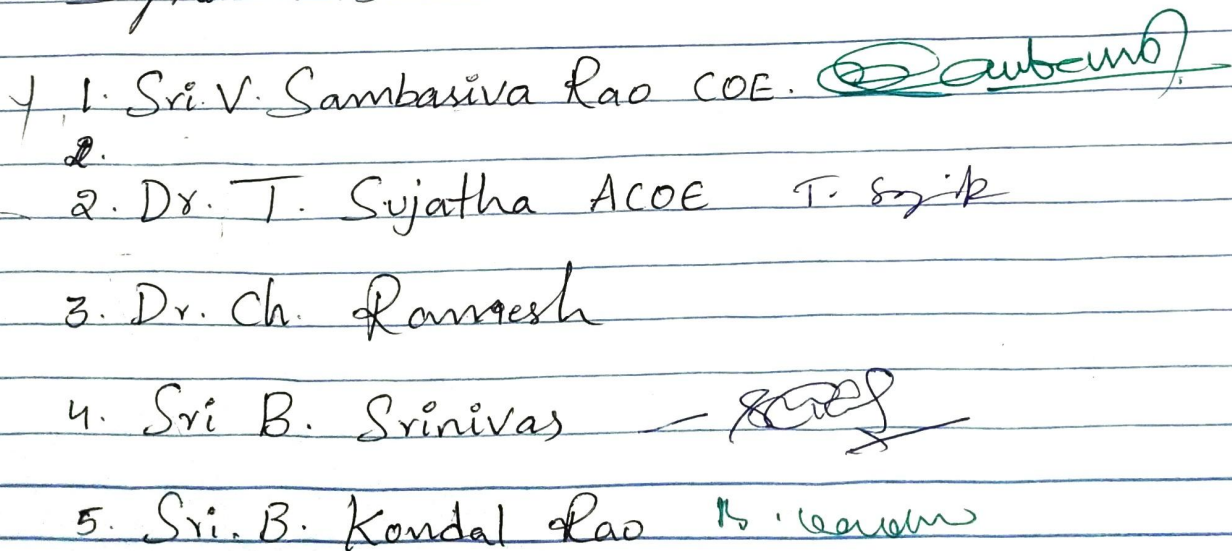 1. Sri. V. Sambasiva Rao COE.
2.
2. Dr. T. Sujatha ACOE T.
3. Dr. Ch. Ramesh
4. Sri B. Srinivas –
5. Sri. B. Kondal Rao B.